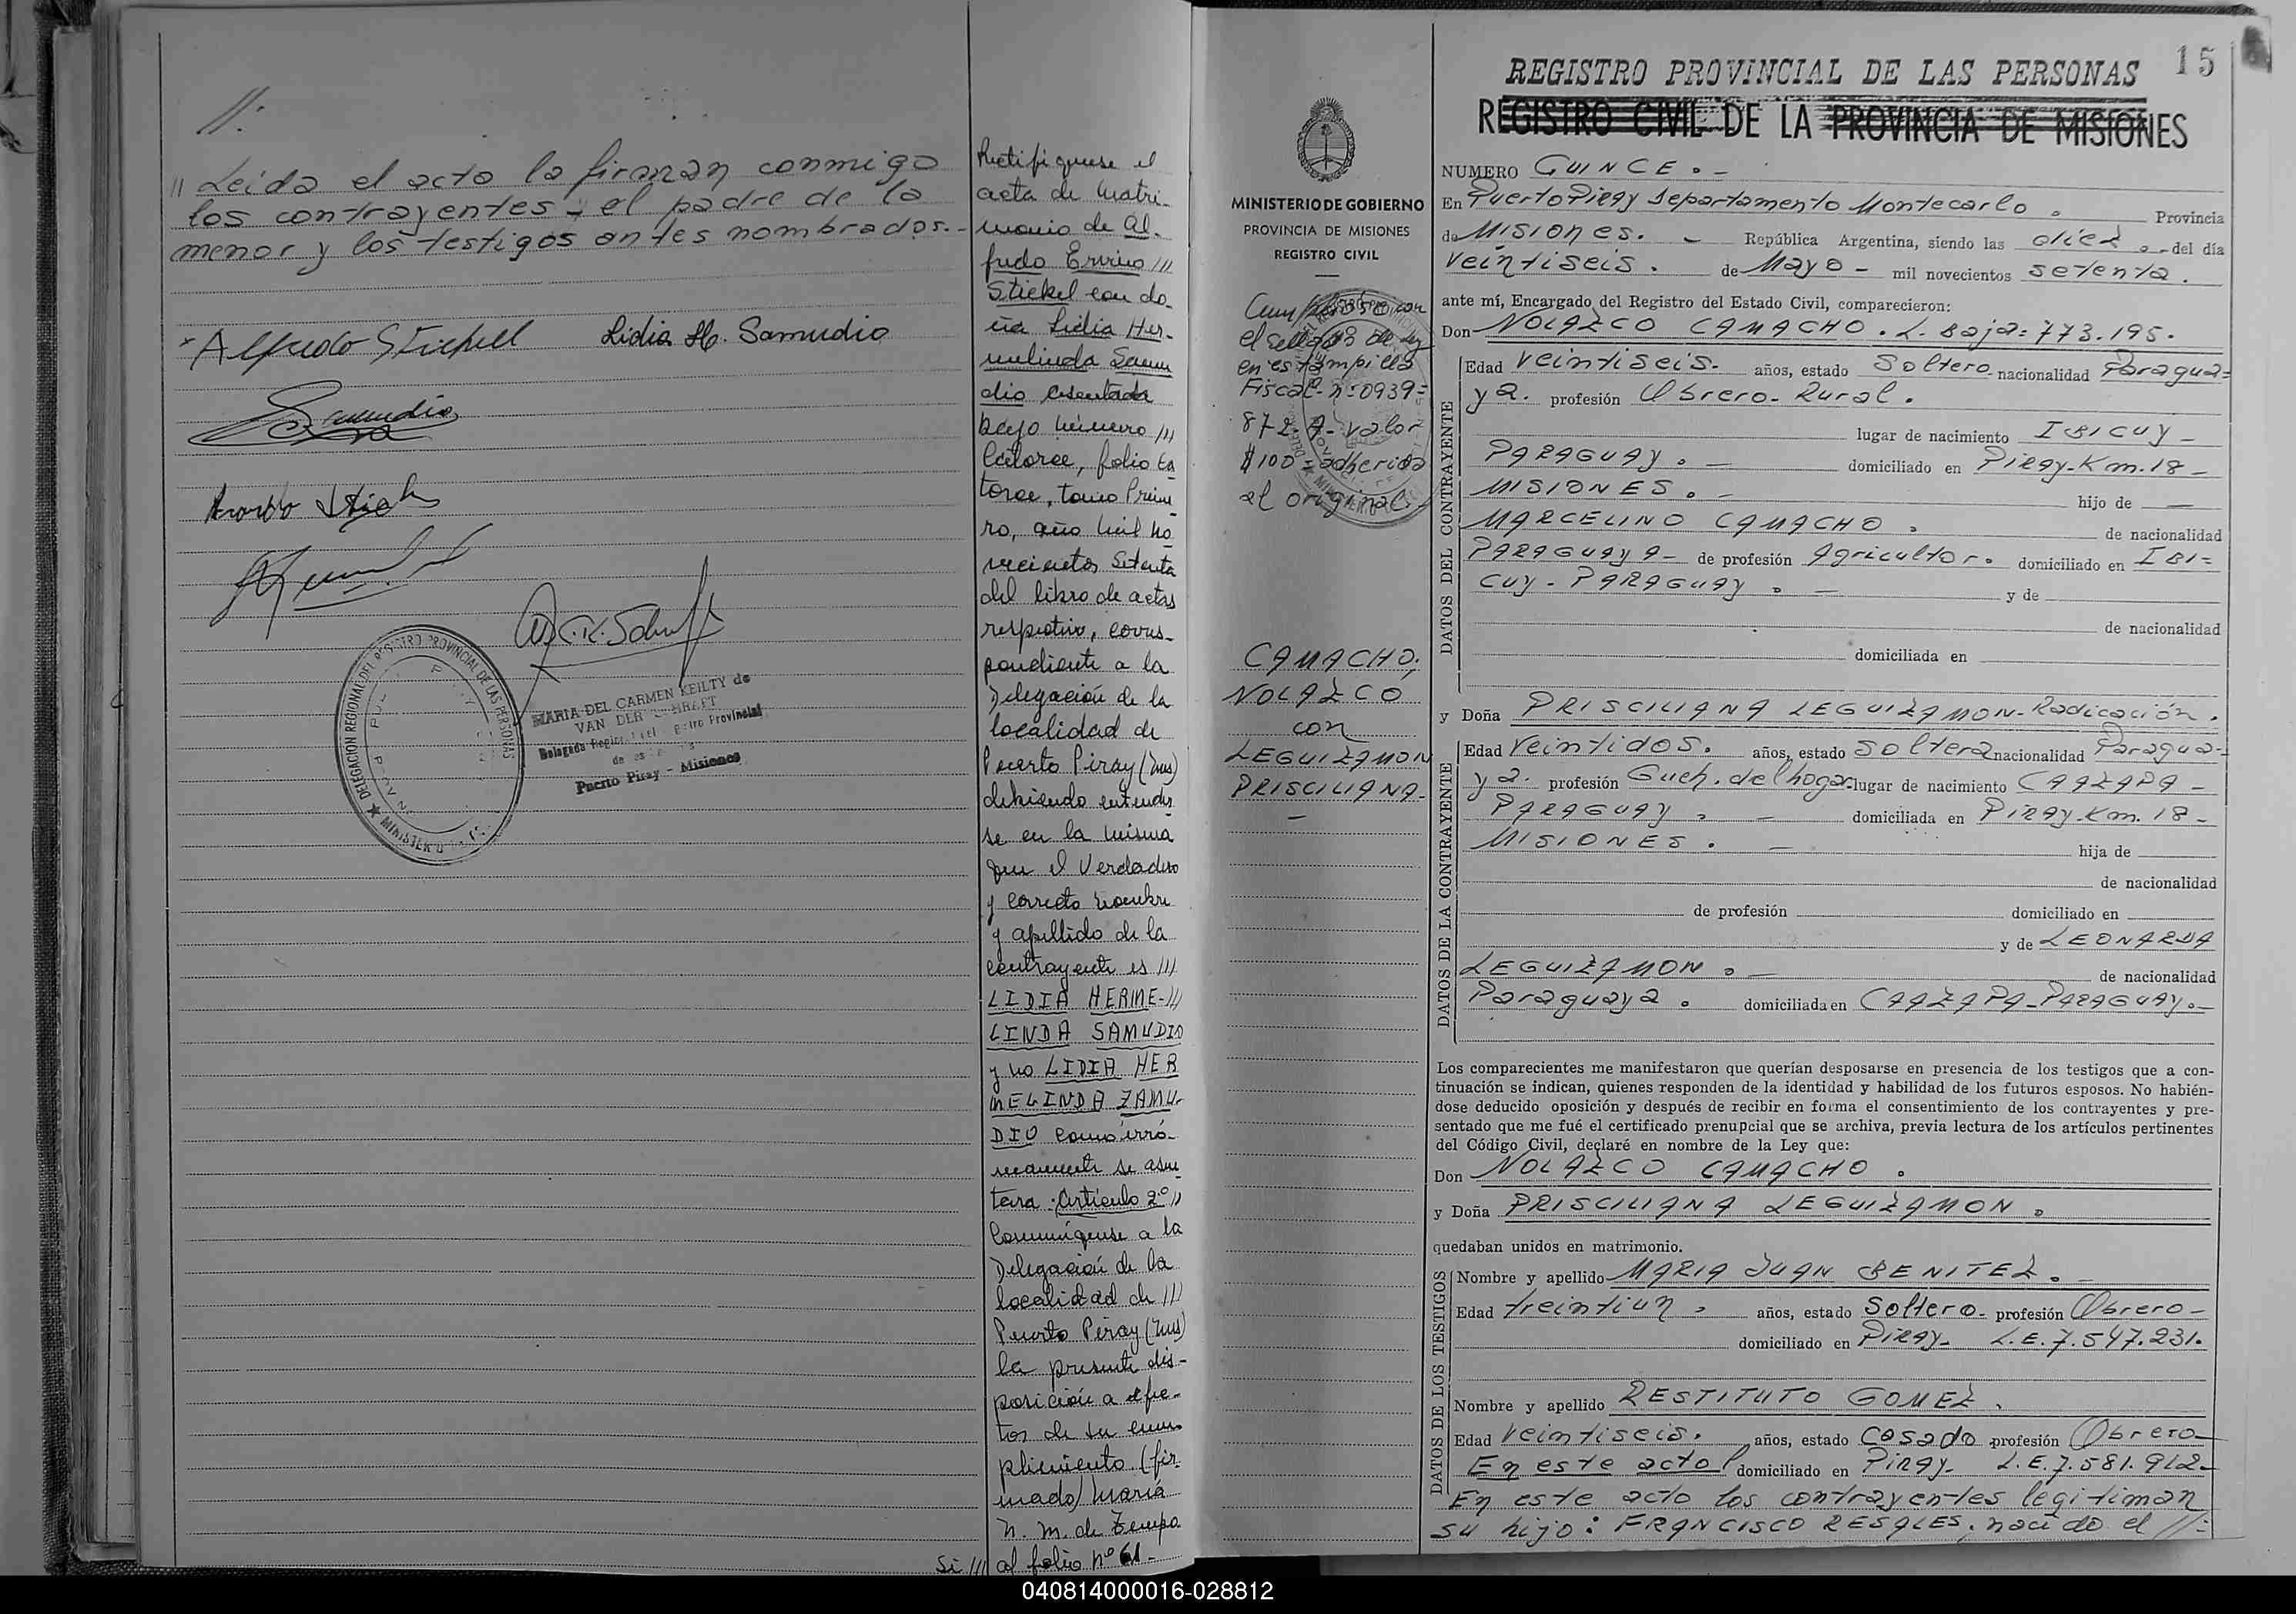 //:
// Leida el acto la firman conmigo
los contrayentes - el padre de la
menor y los testigos antes nombrados.-
Alfredo Stickell Lidia H. Samudio
Samudio
MARIA DEL CARMEN KEILTY de
VAN DER
Delegada
Puerto Piray - Misiones
DELEGACION REGIONAL DEL REGISTRO PROVINCIAL DE LAS PERSONAS
Rectifiquese el
acta de Matri-
monio de Al-
fredo Ervino ///
Stickel con do-
ña Lidia Her-
melinda Samu
dio asentada
bajo número ///
Catorce, folio ca
torce, tomo Prime
ro, año mil no
vecientos Setenta
del libro de actas
respectivo, corres-
pondiente a la
Delegación de la
localidad de
Puerto Piray (Mns)
debiendo entender
se en la misma
que el Verdadero
y correcto nombre
y apellido de la
contrayente es ///
LIDIA HERME-///
LINDA SAMUDIO
y no LIDIA HER
MELINDA ZAMU-
DIO como erró-
neamente se asen
tara. Artículo 2º //
Comuníquese a la
Delegación de la
localidad de ///
Puerto Piray (Mns)
la presente dis-
posición a efec-
tos de su cum-
plimiento (fir-
mado) María
N. M. de
Si /// al folio nº 61-
15
REGISTRO PROVINCIAL DE LAS PERSONAS
REGISTRO CIVIL DE LA PROVINCIA DE MISIONES
MINISTERIO DE GOBIERNO
PROVINCIA DE MISIONES
REGISTRO CIVIL
Cumplióse con
el sellado de ley
en estampilla
Fiscal-n:0939=
872. A- valor
$100= adherida
al original.
CAMACHO;
NOLAZCO
con
LEGUIZAMON
PRISCILIANA.-
NUMERO QUINCE.-
En Puerto Piray Departamento Montecarlo. Provincia
de Misiones.- República Argentina, siendo las diez.- del día
Veintiseis. de Mayo - mil novecientos setenta.
ante mí, Encargado del Registro del Estado Civil, comparecieron:
Don NOLAZCO CAMACHO. L. Baja=773.195.
DATOS DEL CONTRAYENTE
Edad Veintiseis. años, estado Soltero nacionalidad Paragua=
ya. profesión Obrero-Rural.
lugar de nacimiento IBICUY-
PARAGUAY.- domiciliado en Piray-Km.18-
MISIONES.- hijo de -
MARCELINO CAMACHO. de nacionalidad
PARAGUAYA- de profesión Agricultor. domiciliado en IBI=
CUY-PARAGUAY.- y de
de nacionalidad
domiciliada en
y Doña PRISCILIANA LEGUIZAMON-Radicación.
DATOS DE LA CONTRAYENTE
Edad Veintidos. años, estado Soltera nacionalidad Paragua-
ya. profesión Queh. del hogar- lugar de nacimiento CAAZAPA-
PARAGUAY. - domiciliada en Piray-Km. 18-
MISIONES. - hija de
de nacionalidad
de profesión domiciliado en
y de LEONARDA
LEGUIZAMON.- de nacionalidad
Paraguaya. domiciliada en CAAZAPA-PARAGUAY.-
Los comparecientes me manifestaron que querían desposarse en presencia de los testigos que a con-
tinuación se indican, quienes responden de la identidad y habilidad de los futuros esposos. No habién-
dose deducido oposición y después de recibir en forma el consentimiento de los contrayentes y pre-
sentado que me fué el certificado prenupcial que se archiva, previa lectura de los artículos pertinentes
del Código Civil, declaré en nombre de la Ley que:
Don NOLAZCO CAMACHO.
y Doña PRISCILIANA LEGUIZAMON.
quedaban unidos en matrimonio.
DATOS DE LOS TESTIGOS
Nombre y apellido MARIA JUAN BENITEZ.-
Edad treintiun. años, estado Soltero- profesión Obrero-
domiciliado en Piray- L.E.7.547.231.
Nombre y apellido RESTITUTO GOMEZ.
Edad Veintiseis. años, estado Casado profesión Obrero-
En este acto domiciliado en Piray- L.E.7.581.912.-
En este acto los contrayentes legitiman
su hijo: FRANCISCO RESALES, nacido el //:
040814000016-028812